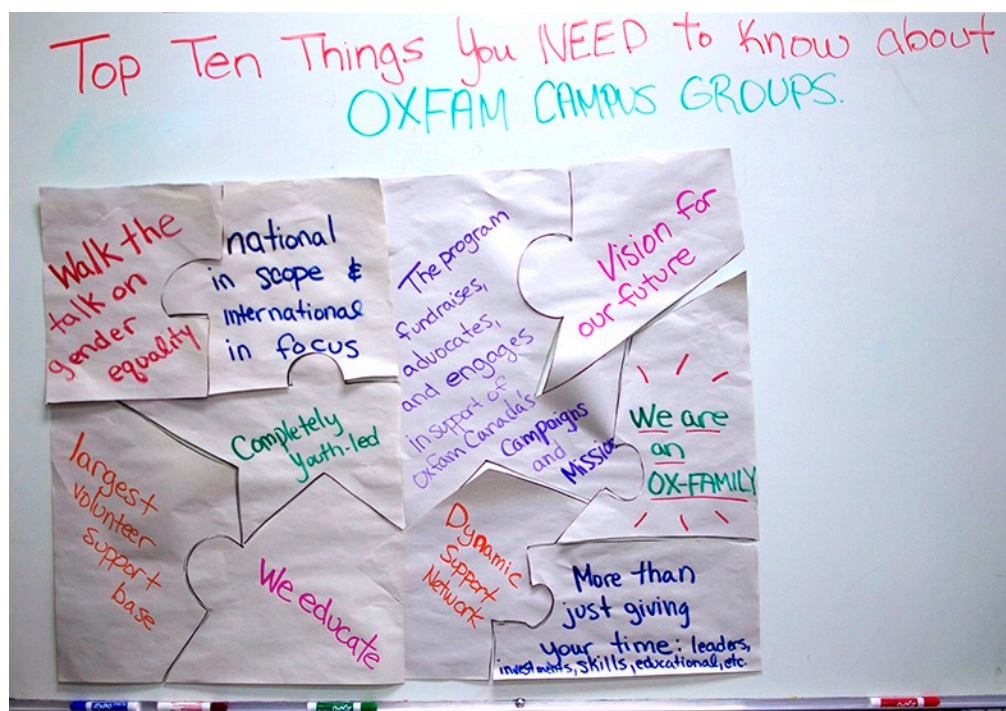 Top Ten Things You NEED to Know about
OXFAM CAMPUS GROUPS.
Walk the
talk on
gender
equality
national
in scope &
international
in focus
The program
fundraises,
advocates,
and engages
in support of
Oxfam Canada's
Campaigns
and
Mission
Vision for
our future
largest
volunteer
support
base
Completely
youth-led
We educate
Dynamic
Support
Network
We are
an
OX-FAMILY
More than
just giving
your time: leaders,
investments, skills, educational, etc.